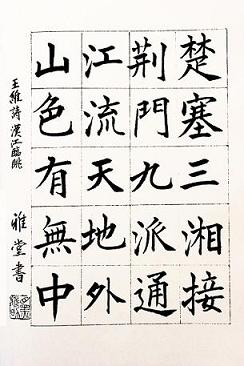 楚塞三湘接
荆門九派通
江流天地外
山色有無中
王維詩漢江臨眺
雅堂書